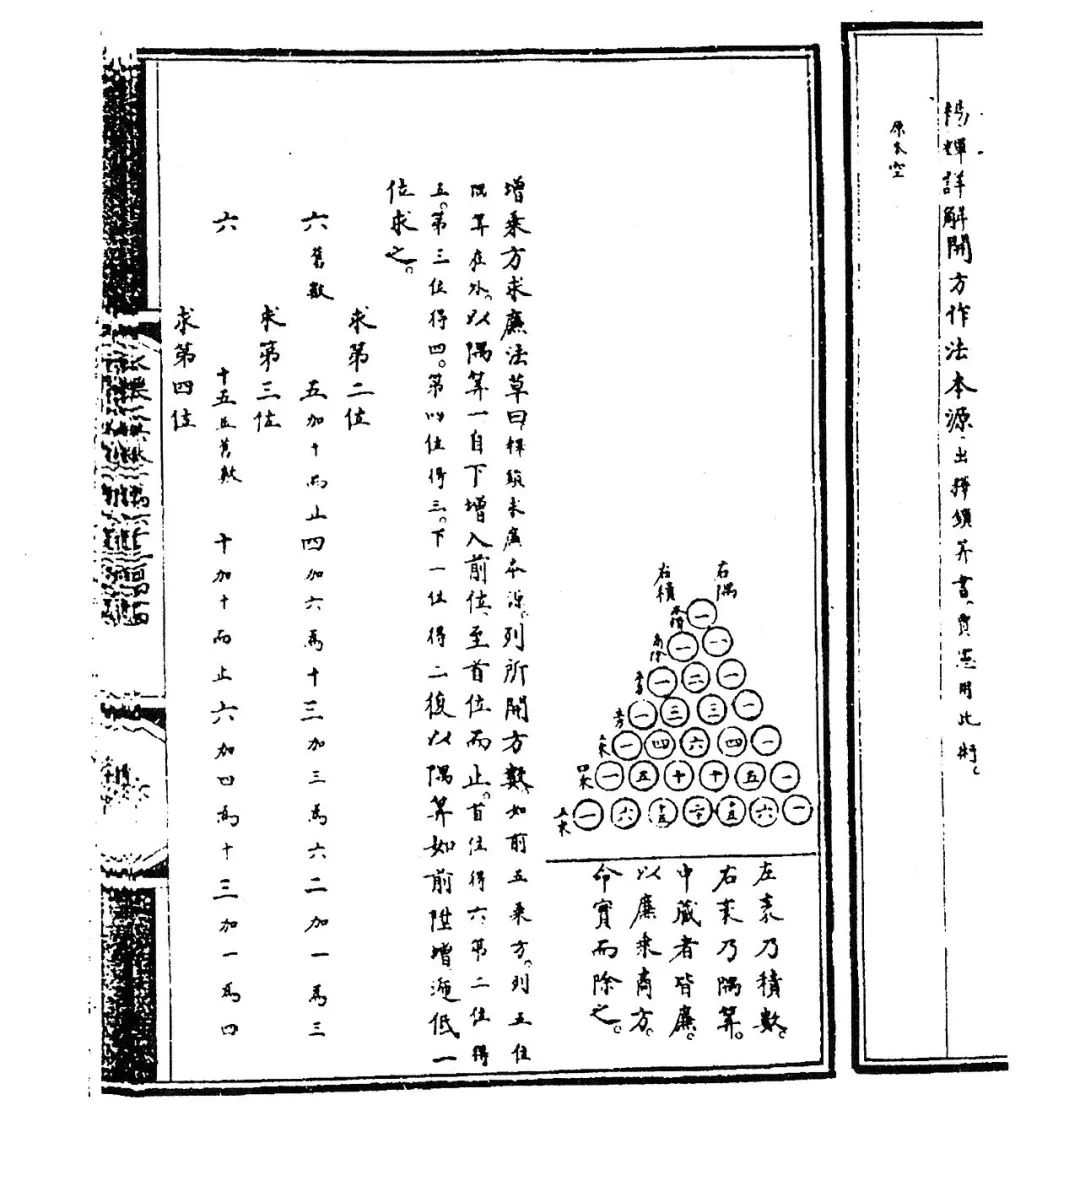 楊輝詳解開方作法本源出釋鎖筭書賈憲用此術。
原本空
右隅
右積
一
一 一
一 二 一
一 三 三 一
一 四 六 四 一
一 五 十 十 五 一
一 六 十五 二十 十五 六 一
左袤乃積數。
右袤乃隅筭。
中藏者皆廉。
以廉乘商方。
命實而除之。
增乘方求廉法草曰釋鎖求廉本源。列所開方數。如前五乘方。列五位
隅筭在外。以隅筭一自下增入前位至首位而止。首位得六第二位得
五。第三位得四。第四位得三。下一位得二復以隅筭如前陞增遞低一
位求之。
求第二位
六舊數 五加十而止四加六為十三加三為六二加一為三
求第三位
六 十五舊數 十加十而止六加四為十三加一為四
求第四位